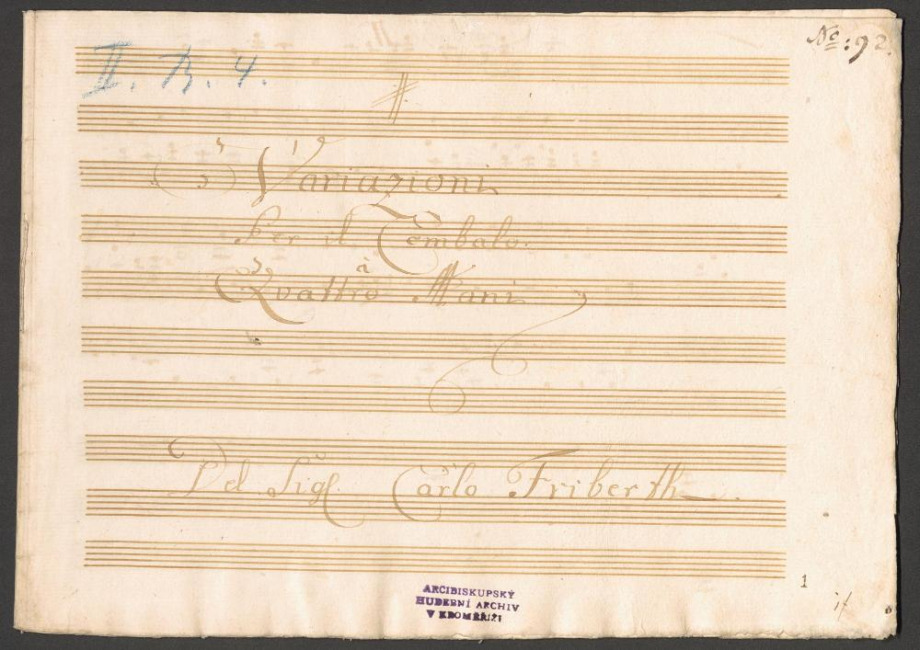 No: 92.
II. B. 4.
Variazioni
Per il Cembalo.
à
Quattro Mani
Del Sigl. Carlo Friberth
ARCIBISKUPSKÝ
HUDEBNÍ ARCHIV
V KROMĚŘÍŽI
1